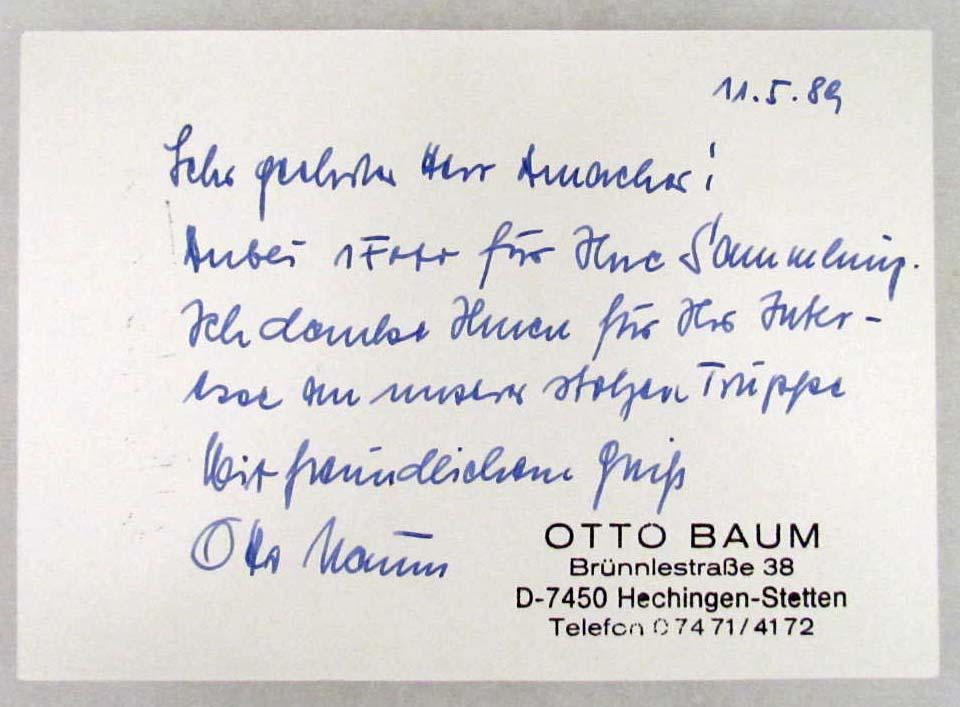 11.5.89
Sehr geehrter Herr Amacher!
Anbei 1 Foto für Ihre Sammlung.
Ich danke Ihnen für Ihr Inter-
esse an unserer stolzen Truppe
Mit freundlichem Gruß
Otto Baum
OTTO BAUM
Brünnlestraße 38
D-7450 Hechingen-Stetten
Telefon 07471/4172